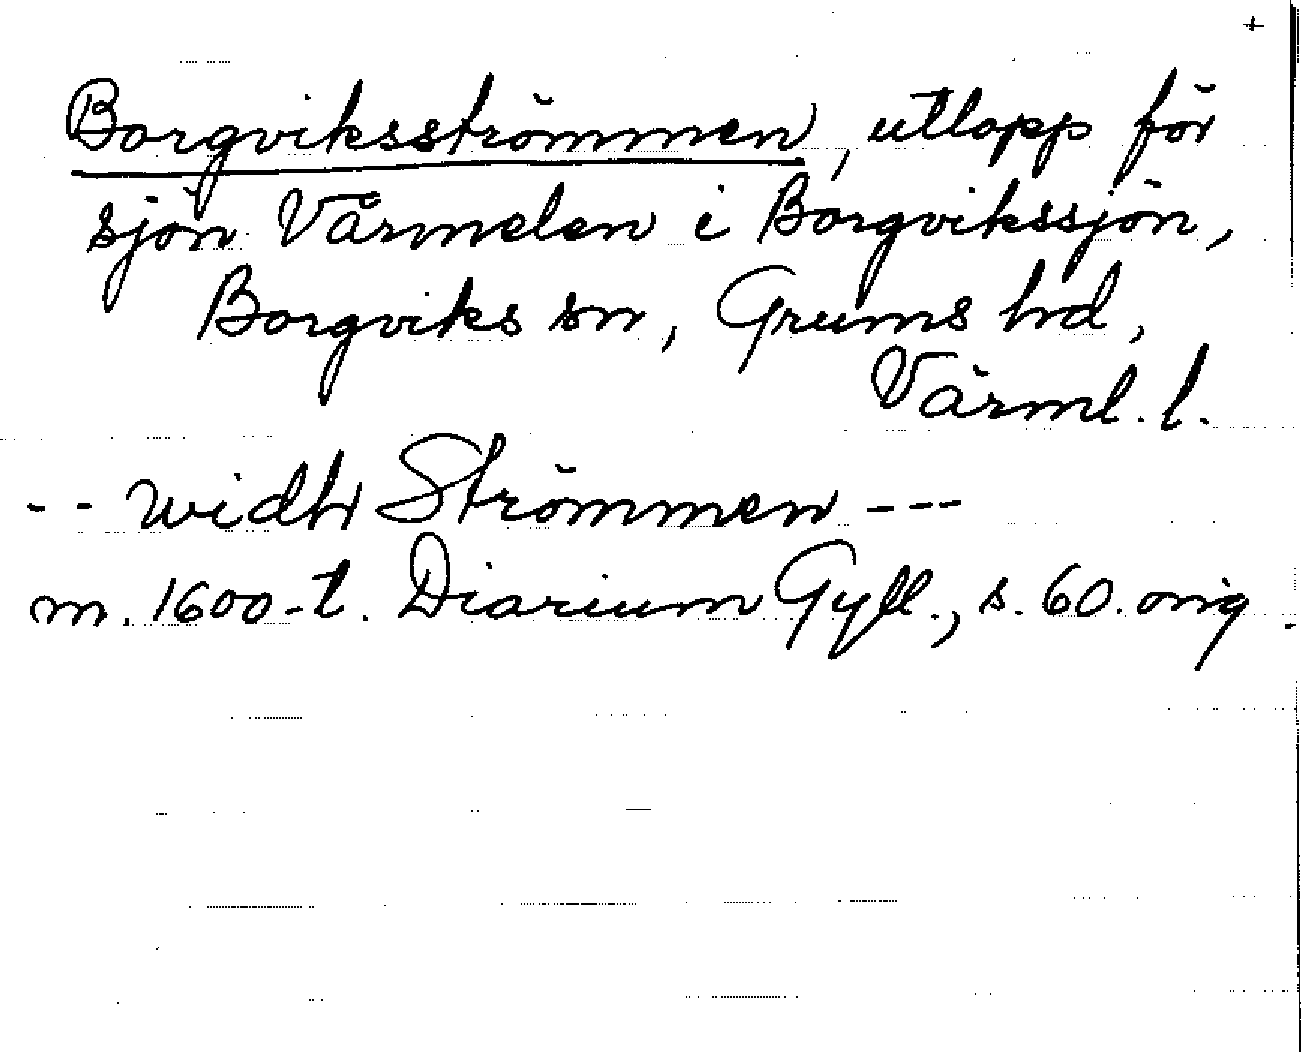 +
Borgviksströmmen, utlopp för
sjön Värmelen i Borgvikssjön,
Borgviks sn, Grums hd,
Värml. l.
-- widh Strömmen ---
m. 1600-t. Diarium Gyll., s. 60. orig.